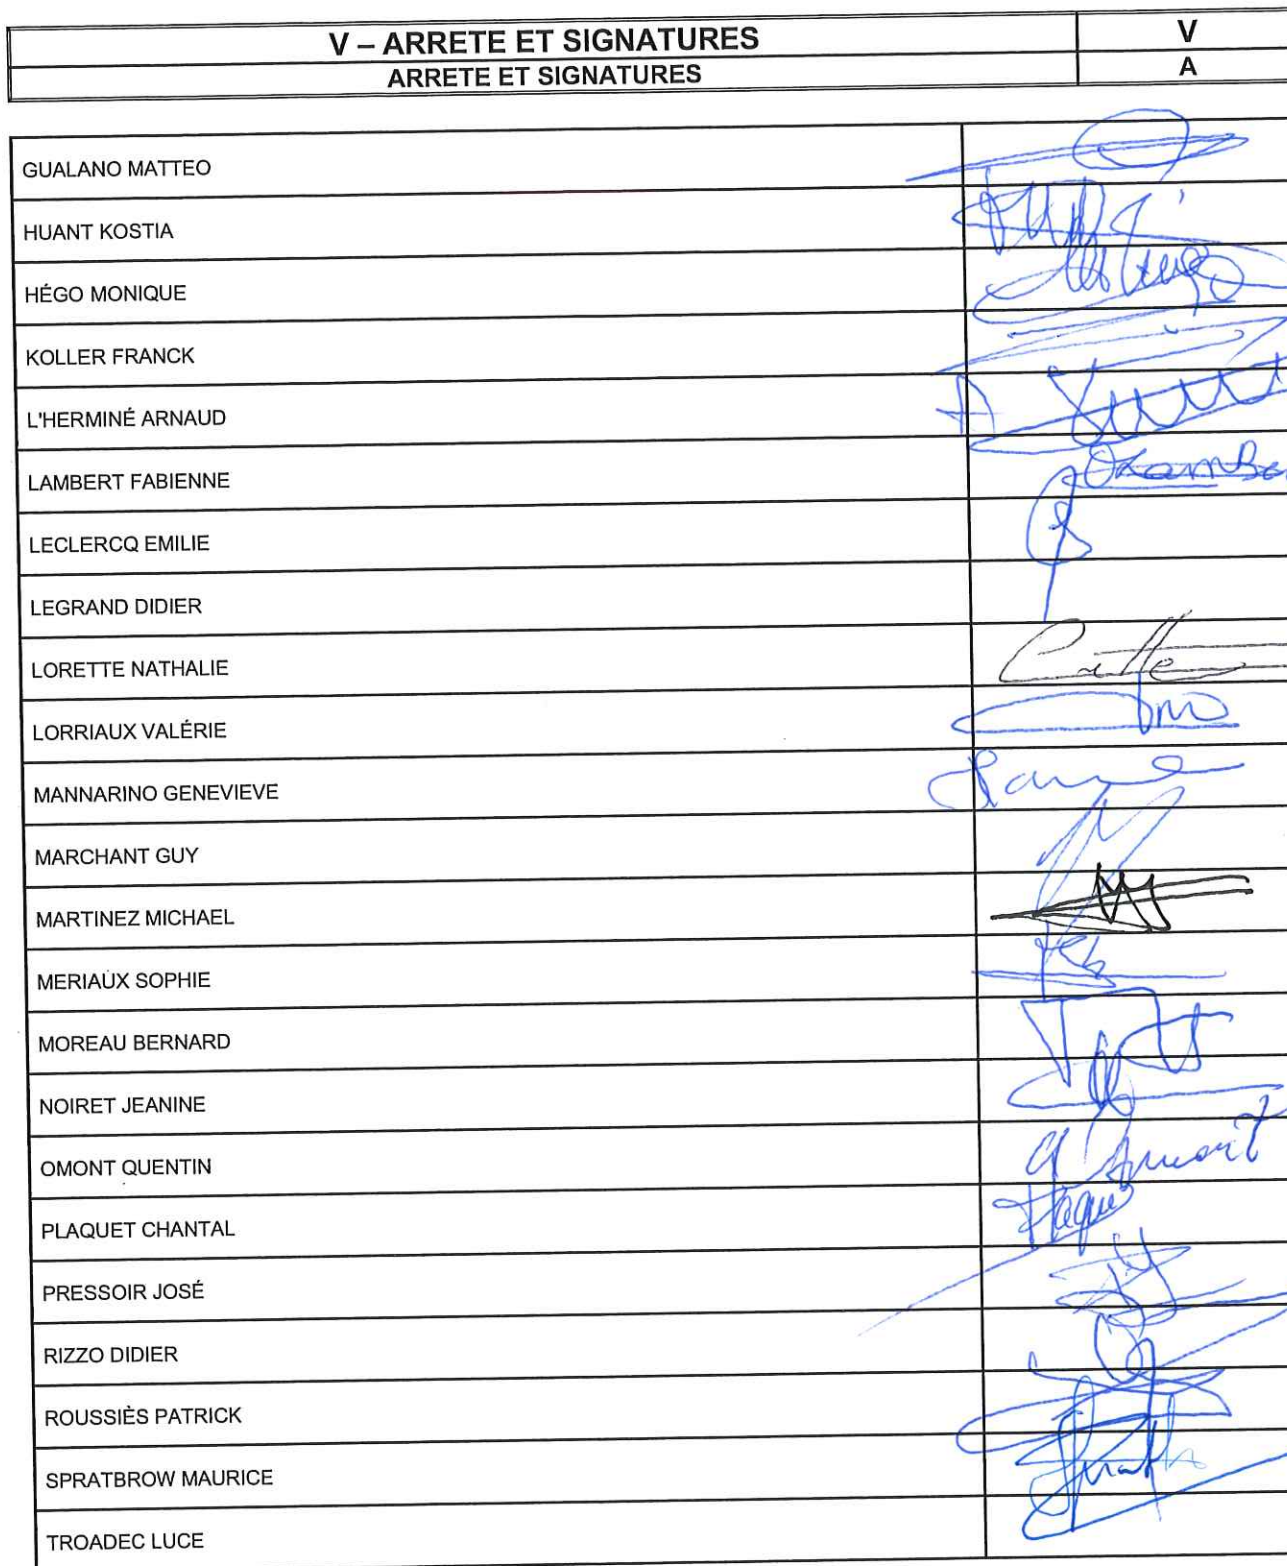 V – ARRETE ET SIGNATURES V
ARRETE ET SIGNATURES A
GUALANO MATTEO
HUANT KOSTIA
HÉGO MONIQUE
KOLLER FRANCK
L'HERMINÉ ARNAUD
LAMBERT FABIENNE
LECLERCQ EMILIE
LEGRAND DIDIER
LORETTE NATHALIE
LORRIAUX VALÉRIE
MANNARINO GENEVIEVE
MARCHANT GUY
MARTINEZ MICHAEL
MERIAUX SOPHIE
MOREAU BERNARD
NOIRET JEANINE
OMONT QUENTIN
PLAQUET CHANTAL
PRESSOIR JOSÉ
RIZZO DIDIER
ROUSSIÈS PATRICK
SPRATBROW MAURICE
TROADEC LUCE